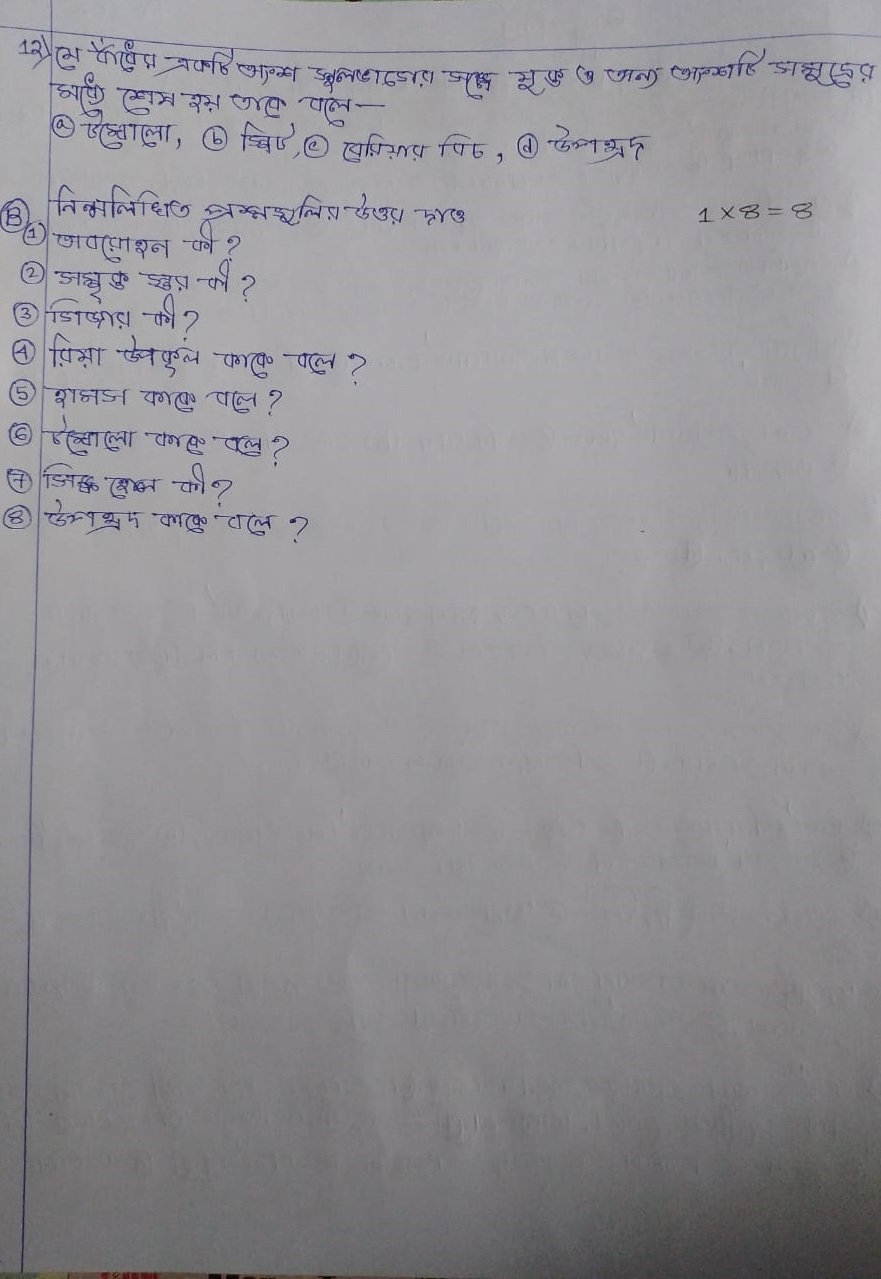 12) যে বাঁধের একটি অংশ স্থলভাগের সঙ্গে যুক্ত ও অন্য অংশটি সমুদ্রের
মধ্যে শেষ হয় তাকে বলে—
ⓐ টম্বোলো, ⓑ স্পিট, ⓒ বেরিয়ার বিচ, ⓓ উপহ্রদ
Ⓑ নিম্নলিখিত প্রশ্নগুলির উত্তর দাও 1 × 8 = 8
① অবরোহন কী?
② সম্পৃক্ত স্তর কী?
③ গিজার কী?
④ রিয়া উপকূল কাকে বলে?
⑤ হামস কাকে বলে?
⑥ টম্বোলো কাকে বলে?
⑦ সিঙ্ক হোল কী?
⑧ উপহ্রদ কাকে বলে?